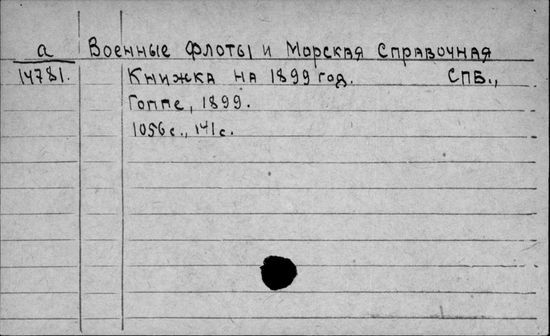 а Военные флоты и Морская Справочная
14781. Книжка на 1899 год. СПБ.,
Гоппе, 1899.
1056 с., 141 с.